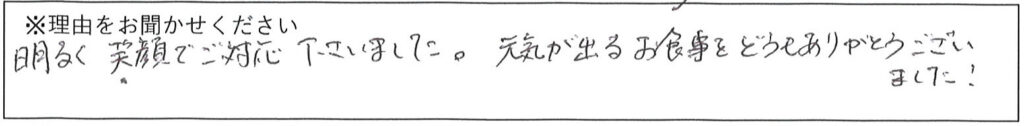 ※理由をお聞かせください
明るく笑顔でご対応下さいました。元気が出るお食事をどうもありがとうござい
ました!